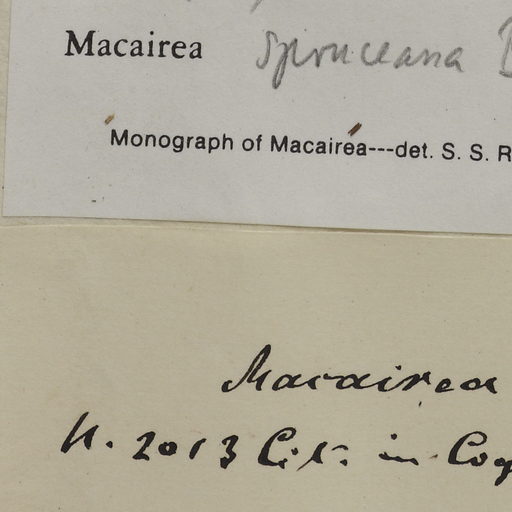 Macairea spruceana B
Monograph of Macairea---det. S. S. R
Macairea
N. 2013 Cit. in Cog